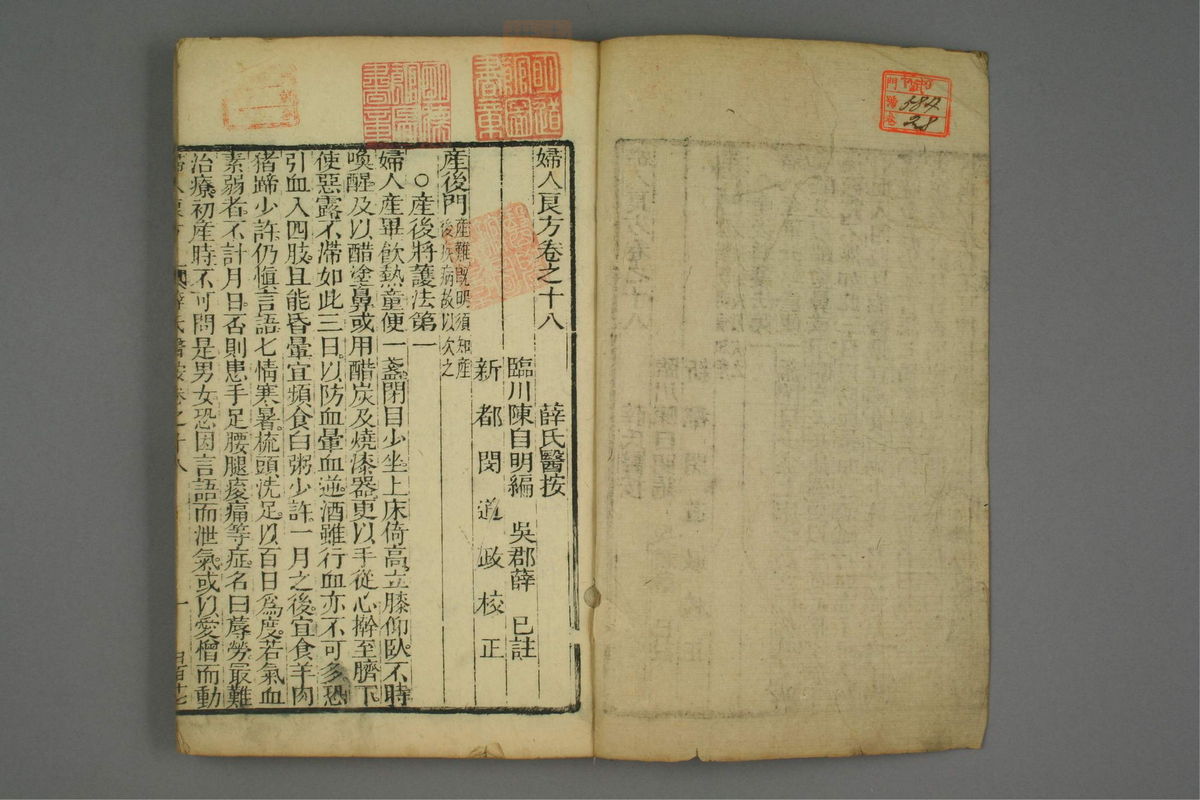 婦人良方卷之十八
薛氏醫按
臨川陳自明編 吳郡薛 已註
新都閔道敭校正
產後門 產難既明須知產後疾病故以次之
○產後將護法第一
婦人產畢飲熱童便一盞閉目少坐上床倚高立膝仰臥不時
喚醒及以醋塗鼻或用醋炭及燒漆器更以手從心擀至臍下
使惡露不滯如此三日以防血暈血逆酒雖行血亦不可多恐
引血入四肢且能昏暈宜頻食白粥少許一月之後宜食羊肉
猪蹄少許仍慎言語七情寒暑梳頭洗足以百日為度若氣血
素弱者不計月日否則患手足腰腿痠痛等症名曰蓐勞最難
治療初產時不可問是男女恐因言語而泄氣或以愛憎而動
584
28